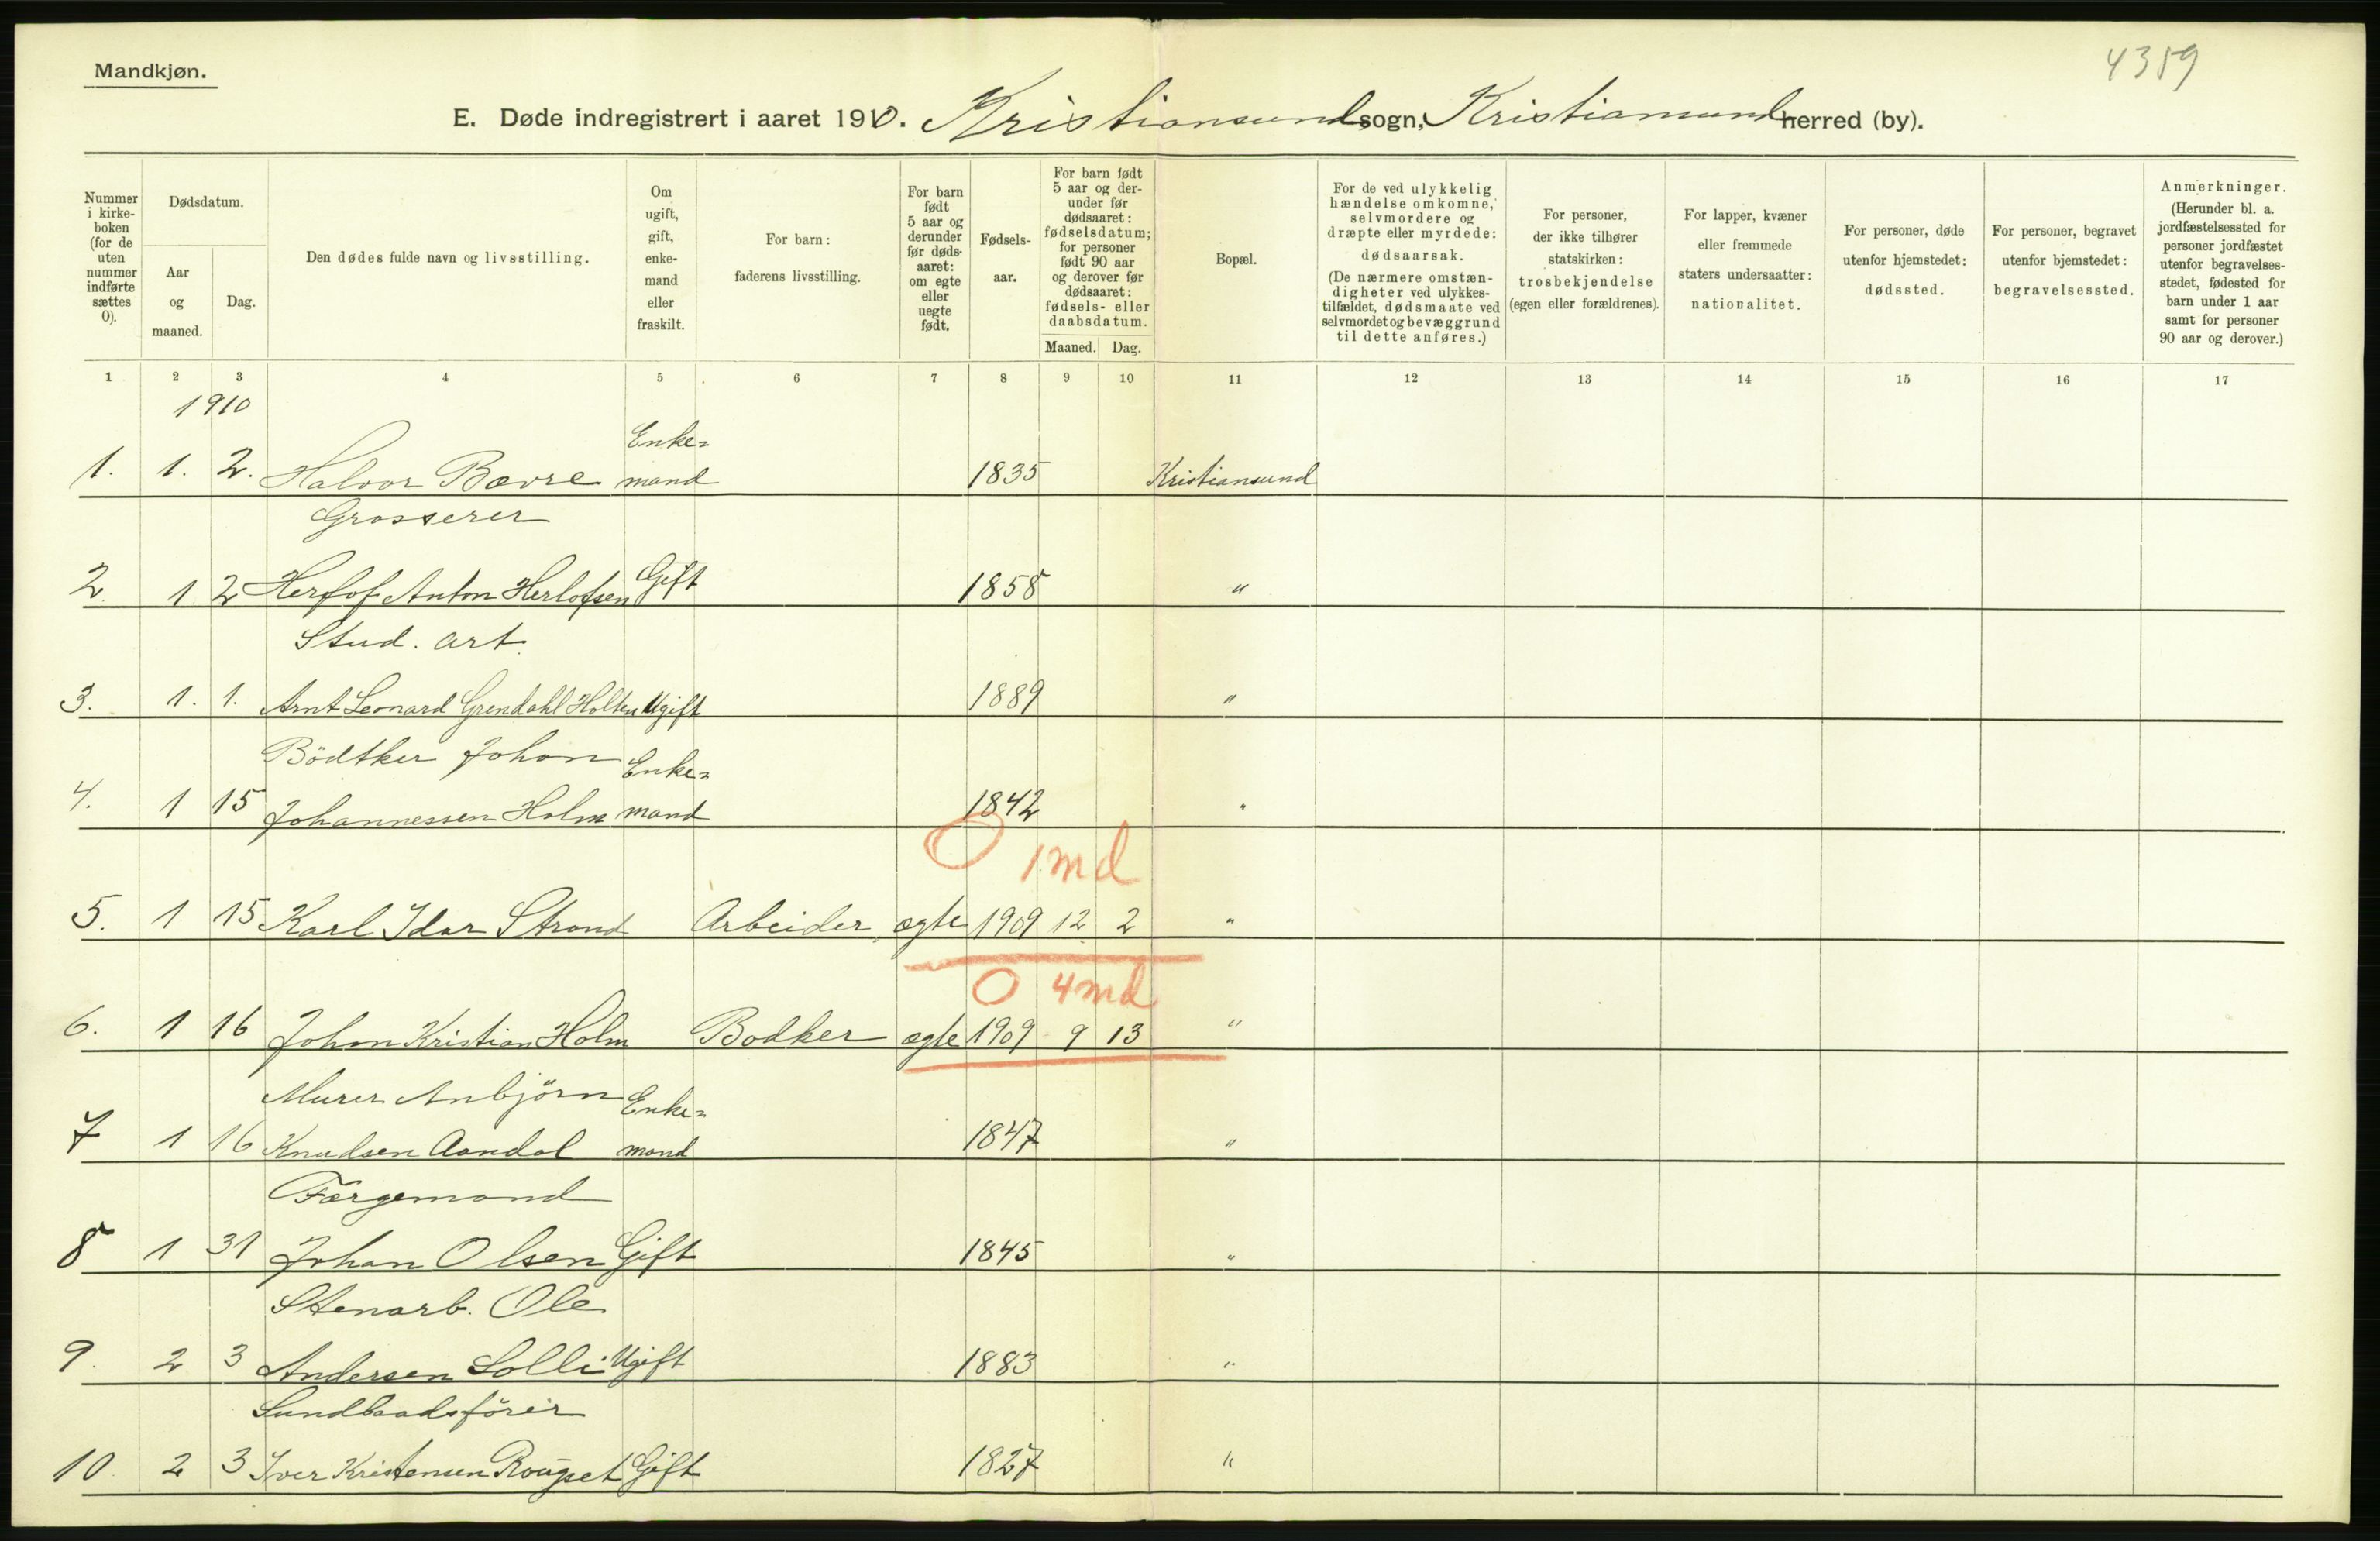 Mandkjøn.
4359
E. Døde indregistrert i aaret 1910. Kristiansund sogn, Kristiansund herred (by).
Nummer i kirke- boken (for de uten nummer indførte sættes 0).
Dødsdatum.
Aar og maaned.
Dag.
Den dødes fulde navn og livsstilling.
Om ugift, gift, enke- mand eller fraskilt.
For barn: faderens livsstilling.
For barn født 5 aar og derunder før døds- aaret: om egte eller uegte født.
Fødsels- aar.
For barn født 5 aar og der- under før dødsaaret: fødselsdatum; for personer født 90 aar og derover før dødsaaret: fødsels- eller daabsdatum.
Maaned. Dag.
Bopæl.
For de ved ulykkelig hændelse omkomne, selvmordere og dræpte eller myrdede: dødsaarsak. (De nærmere omstæn- digheter ved ulykkes- tilfældet, dødsmaate ved selvmordet og bevæggrund til dette anføres.)
For personer, der ikke tilhører statskirken: trosbekjendelse (egen eller forældrenes).
For lapper, kvæner eller fremmede staters undersaatter: nationalitet.
For personer, døde utenfor hjemstedet: dødssted.
For personer, begravet utenfor hjemstedet: begravelsessted.
Anmerkninger. (Herunder bl. a. jordfæstelsessted for personer jordfæstet utenfor begravelses- stedet, fødested for barn under 1 aar samt for personer 90 aar og derover.)
1 2 3 4 5 6 7 8 9 10 11 12 13 14 15 16 17
1910
Enke-
1. 1. 2. Halvor Bævre mand 1835 Kristiansund
Grosserer
2. 1 2 Herlof Anton Herlofsen Gift 1858 "
Stud. art.
3. 1. 1. Arnt Leonard Grendahl Holten Ugift 1889 "
Bödtker Johan Enke-
4. 1 15 Johannessen Holm mand 1842 "
0 1 md
5. 1 15 Karl Idar Strand Arbeider ægte 1909 12 2 "
0 4 md
6. 1 16 Johan Kristian Holm Bødker ægte 1909 9 13 "
Murer Anbjörn Enke-
7 1 16 Knudsen Aandal mand 1847 "
Færgemand
8 1 31 Johan Olsen Gift 1845 "
Stenarb. Ole
9. 2 3 Andersen Solli Ugift 1883 "
Sundbaadsförer
10. 2 3 Iver Kristensen Gift 1827 "